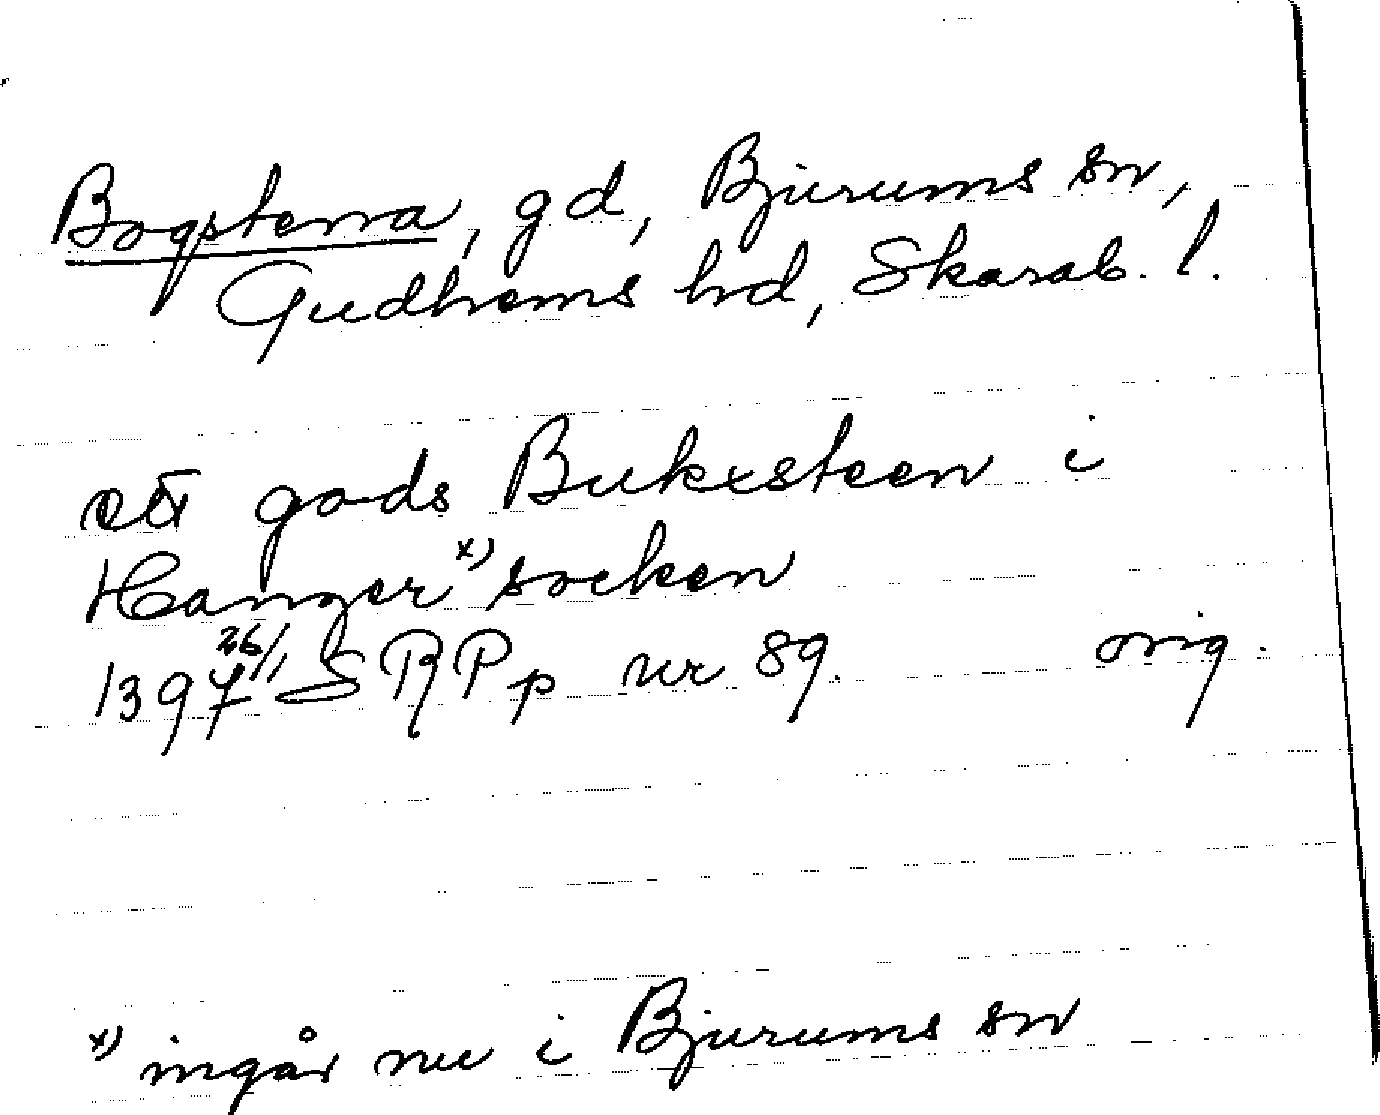 Bogstena, gd, Bjurums sn,
Gudhems hd, Skarab. l.
ett gods Bukxsteen i
Hanger x) socken
1397 26/1 SRPp nr 89. orig.
x) ingår nu i Bjurums sn